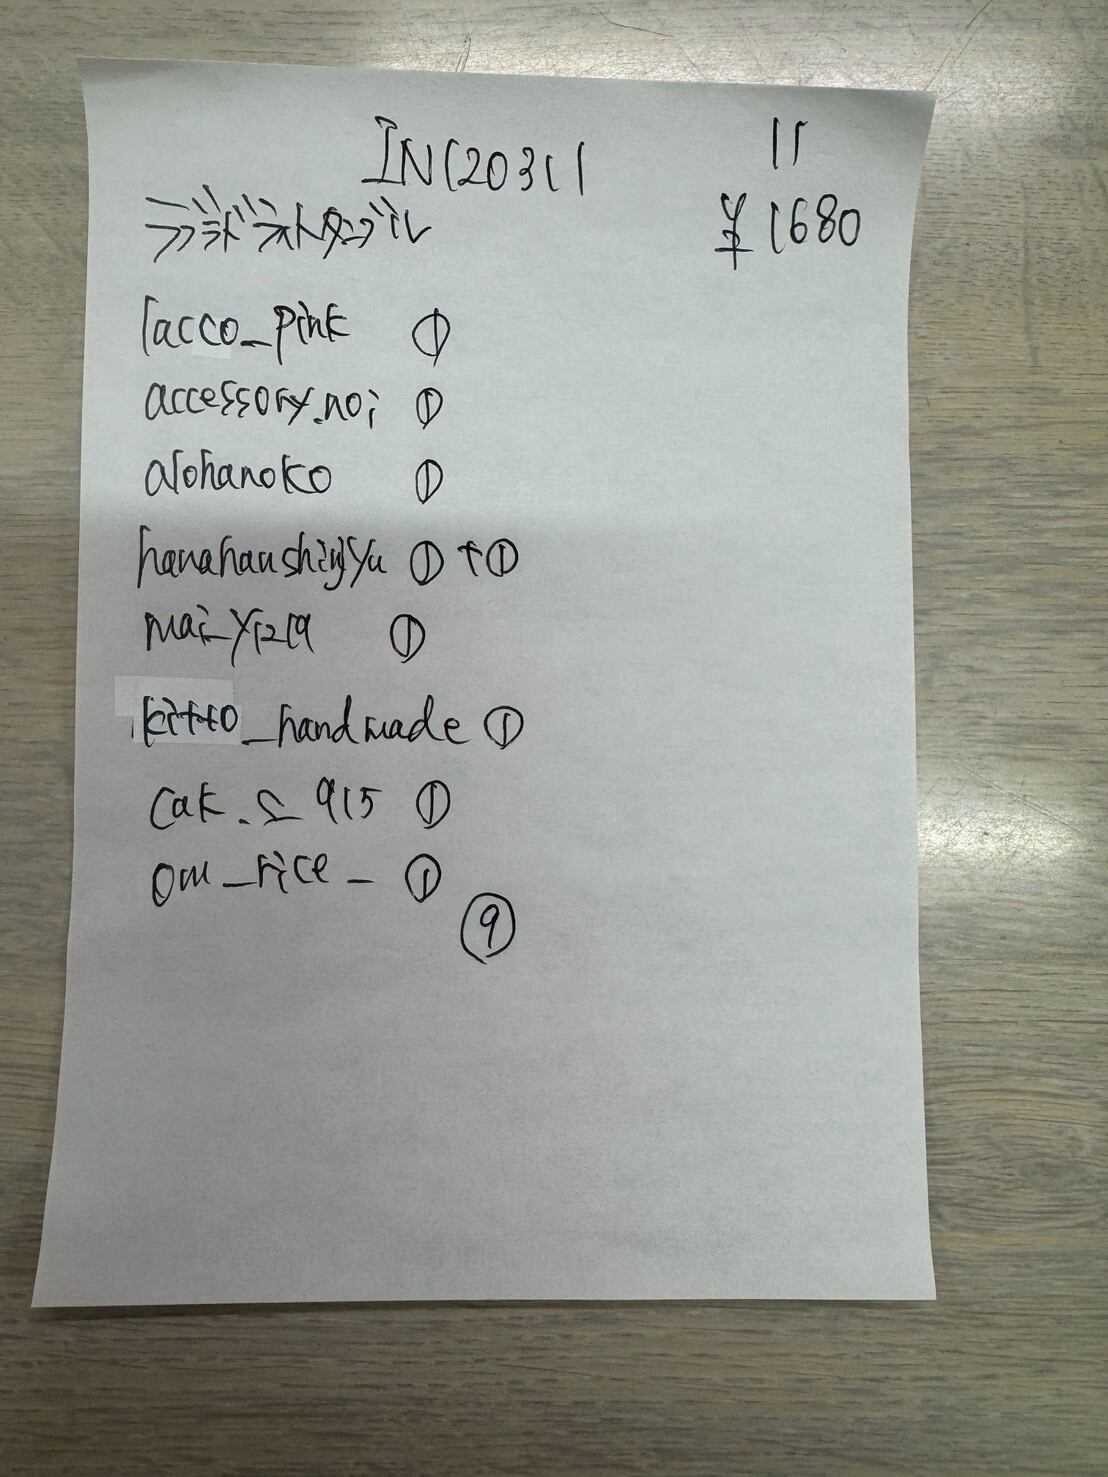 IN120311 11
¥1680
lacco_pink ①
accessory.noi ①
alohanoko ①
hanahanshinjyu ① + ①
mai_y1219 ①
kitto_handmade ①
cak.s_915 ①
om_rice_ ①
⑨